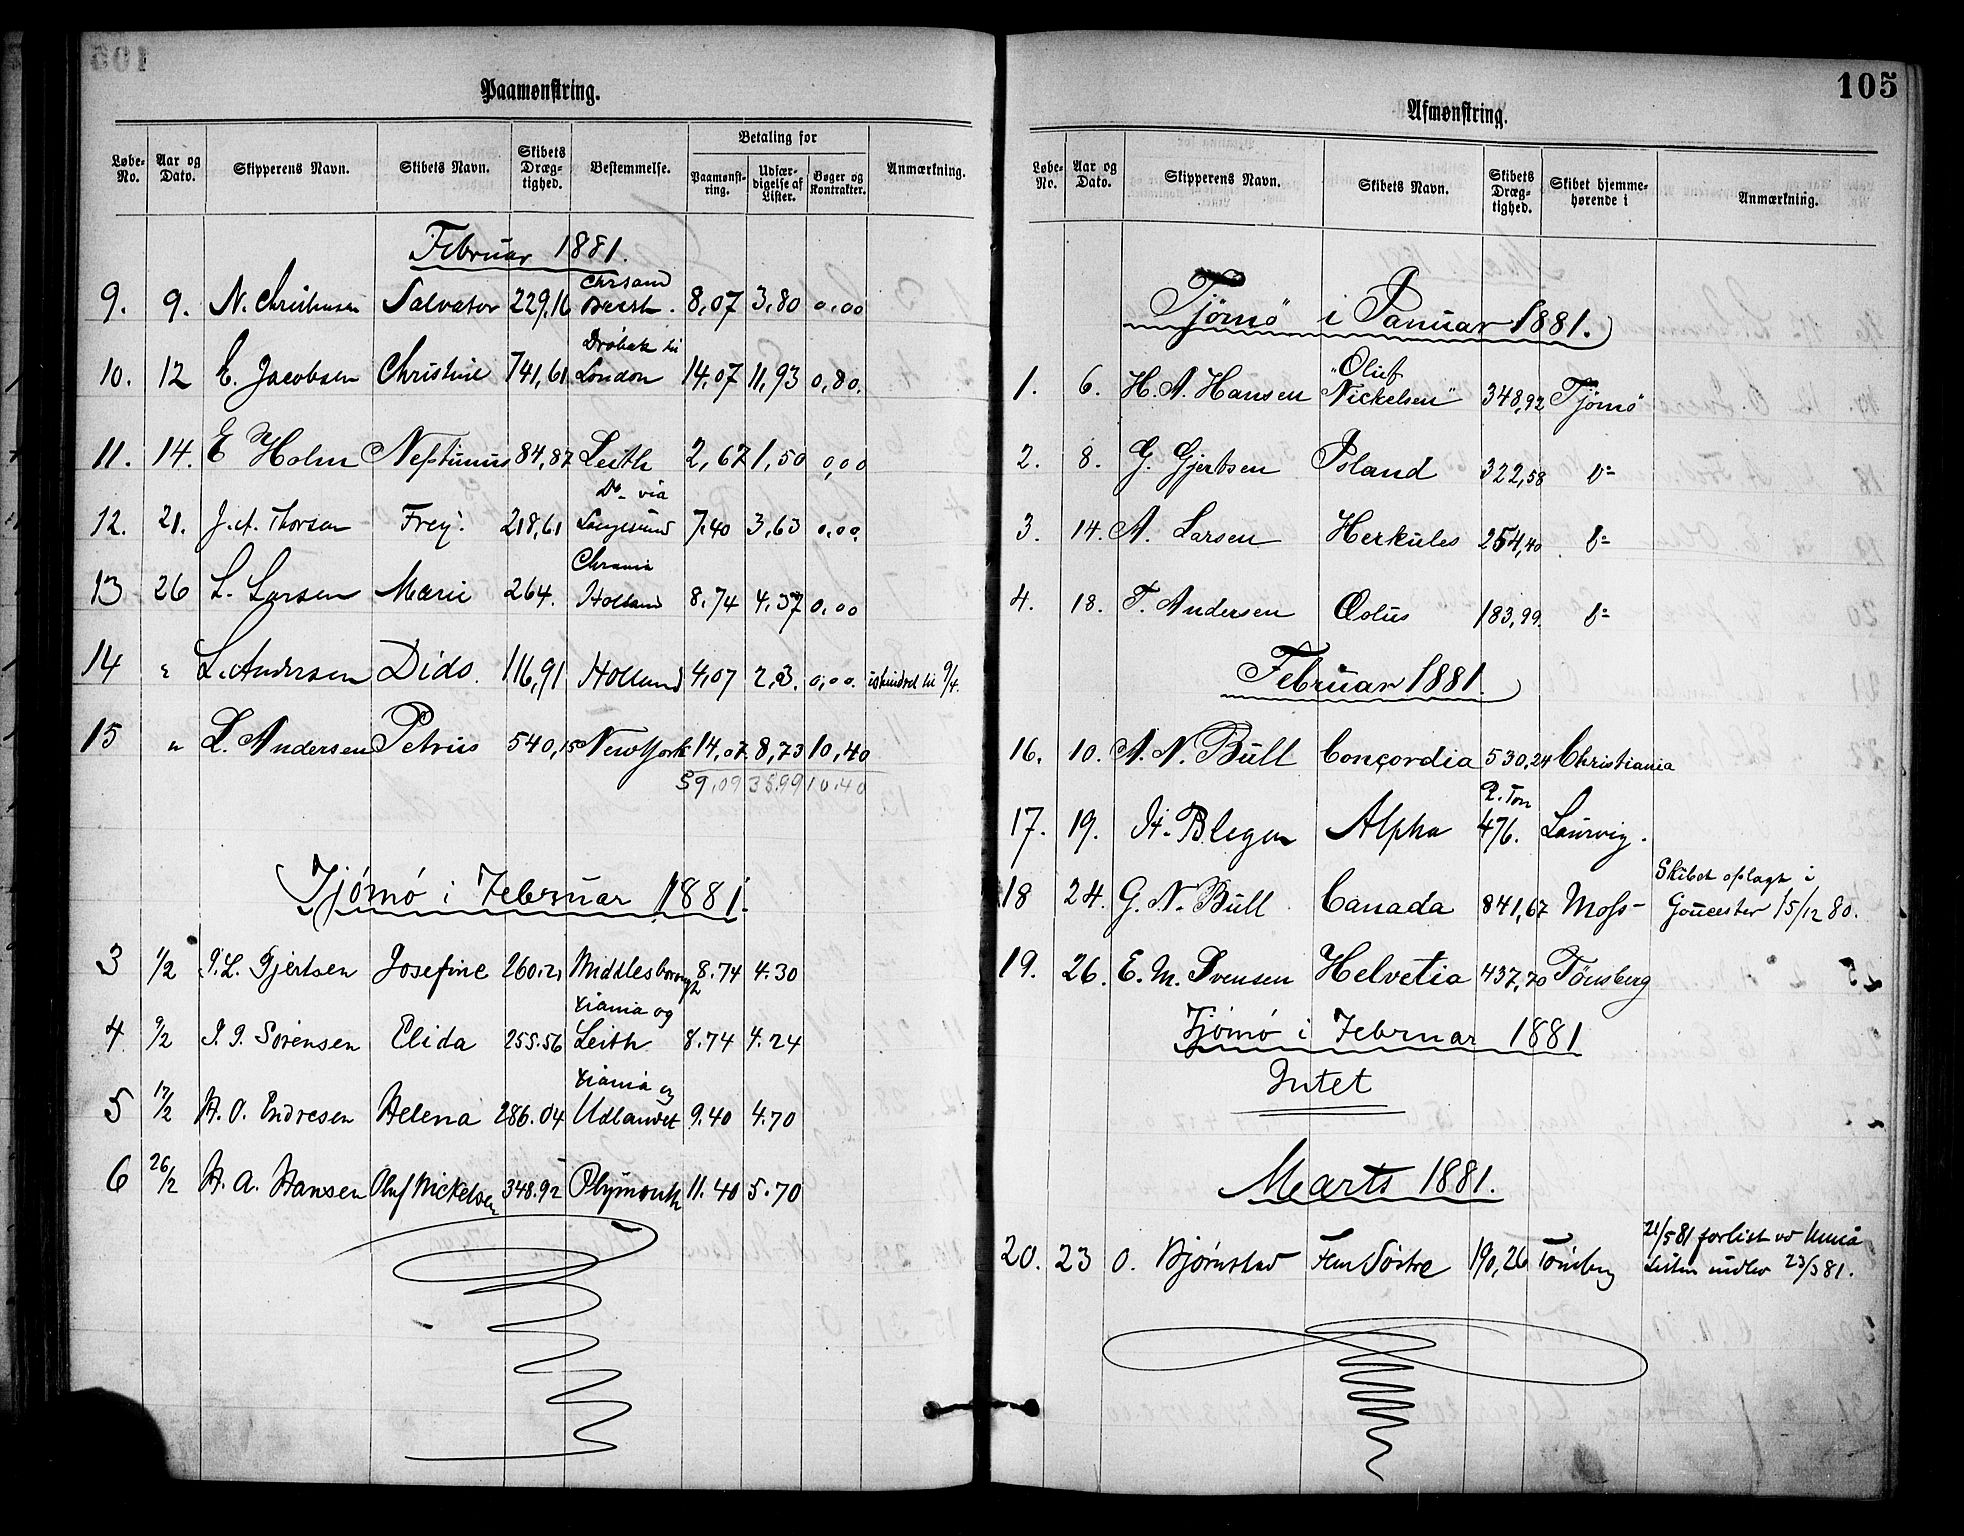 Paamønstring.
Løbe-No. Aar og Dato. Skipperens Navn. Skibets Navn. Skibets Dræg-tighed. Bestemmelse. Betaling for Paamønst-ring. Udfær-digelse af Lister. Bøger og Kontrakter. Anmærkning.
Februar 1881.
9. 9. N. Christensen Salvator 229,16 Chrsand 8,07 3,80 0,00
10. 12 E. Jacobsen Christine 741,61 Dröbak til London 14,07 11,93 0,80.
11. 14. E Holm Neptunus 84,87 Leith 2,67 1,50 0,00
12. 21. J. A. Thorsen Frey. 218,61 Do via Langesund 7,40 3,63 0,00.
13 26 L. Larsen Marie 264. Chrania Holland 8,74 4,37 0,00
14 " L. Andersen Dido. 116,91 Holland 4,07 2,03. 0,00. til 9/4.
15 " L. Andersen Petrus 540,15 New York 14,07 8,73 10,40
59.09 35.99 10.40
Tjömö i Februar 1881.
3 1/2 P. L. Gjertsen Josefine 260.21 Middlesborough 8.74 4.30
4 9/2 P. J. Sörensen Elida 255.56 Xiania og Leith 8.74 4.24
5 17/2 H. O. Endresen Helena 286.04 Xiania og Udlandet 9.40 4.70
6 26/2 H. A. Hansen Oluf Nickelsen 348.92 Plymouth 11.40 5.70
105
Afmønstring.
Løbe-No. Aar og Dato. Skipperens Navn. Skibets Navn. Skibets Dræg-tighed. Skibet hjemme-hørende i Anmærkning.
Tjömö i Januar 1881.
1. 6. H. A. Hansen "Oluf Nickelsen" 348,92 Tjömö
2. 8. G. Gjertsen Island 322,58 do
3. 14. A. Larsen Herkules 254,40 do
4. 18. T. Andersen Æolus 183,99. do
Februar 1881.
16. 10. A. N. Bull Concordia 530,24 Christiania
17. 19. H. Blegen Alpha R. Ton 476. Laurvig.
18 24. G. N. Bull Canada 841,67 Moss Skibet oplagt i Goucester 15/12 80.
19. 26. E. M. Svensen Helvetia 437,70 Tønsberg
Tjömö i Februar 1881
Intet
Marts 1881.
20. 23 O. Bjørnstad Fem Söstre 190,26 Tönsberg 21/5 81 forlist vd Umeå
Listen indlev 23/5 81.